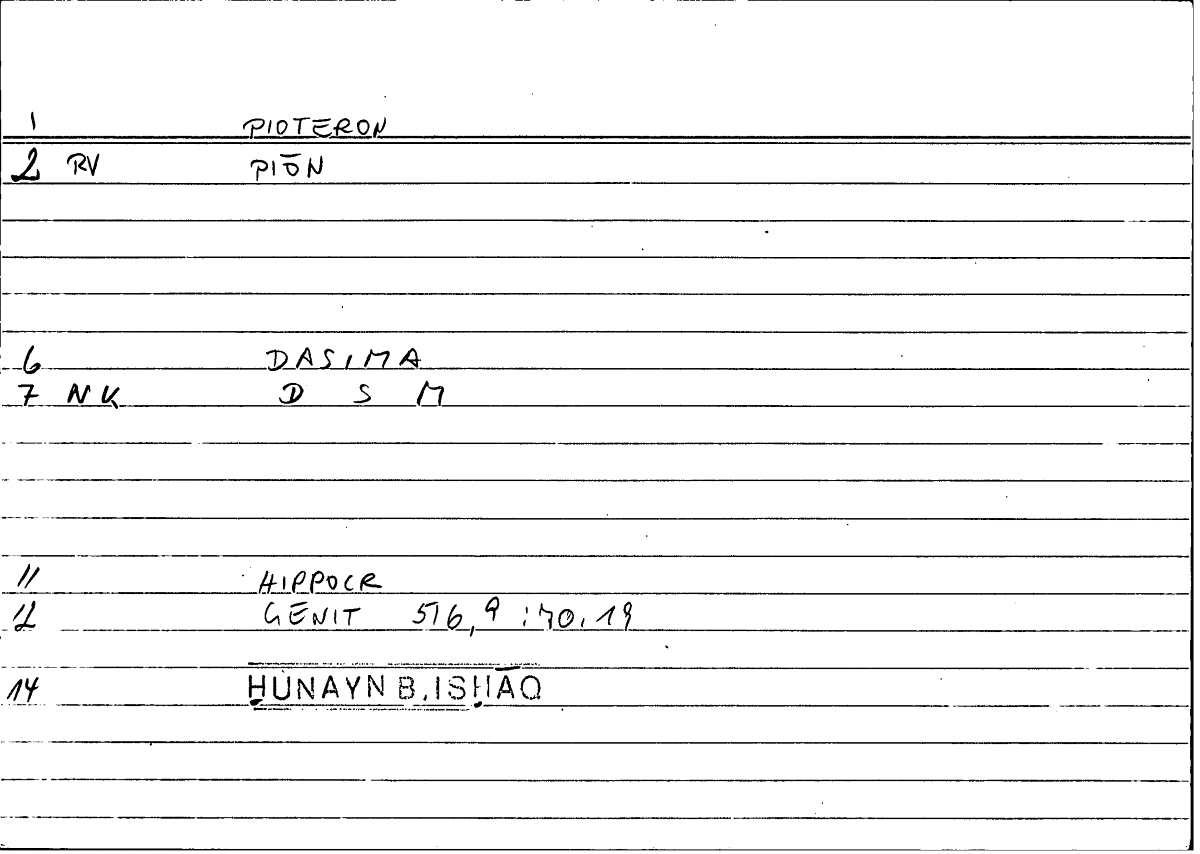 1 PIOTERON
2 RV PIŌN
6 DASIMA
7 NK D S M
11 HIPPOCR
12 GENIT 516,9 : 70.19
14 ḤUNAYN B. ISḤĀQ